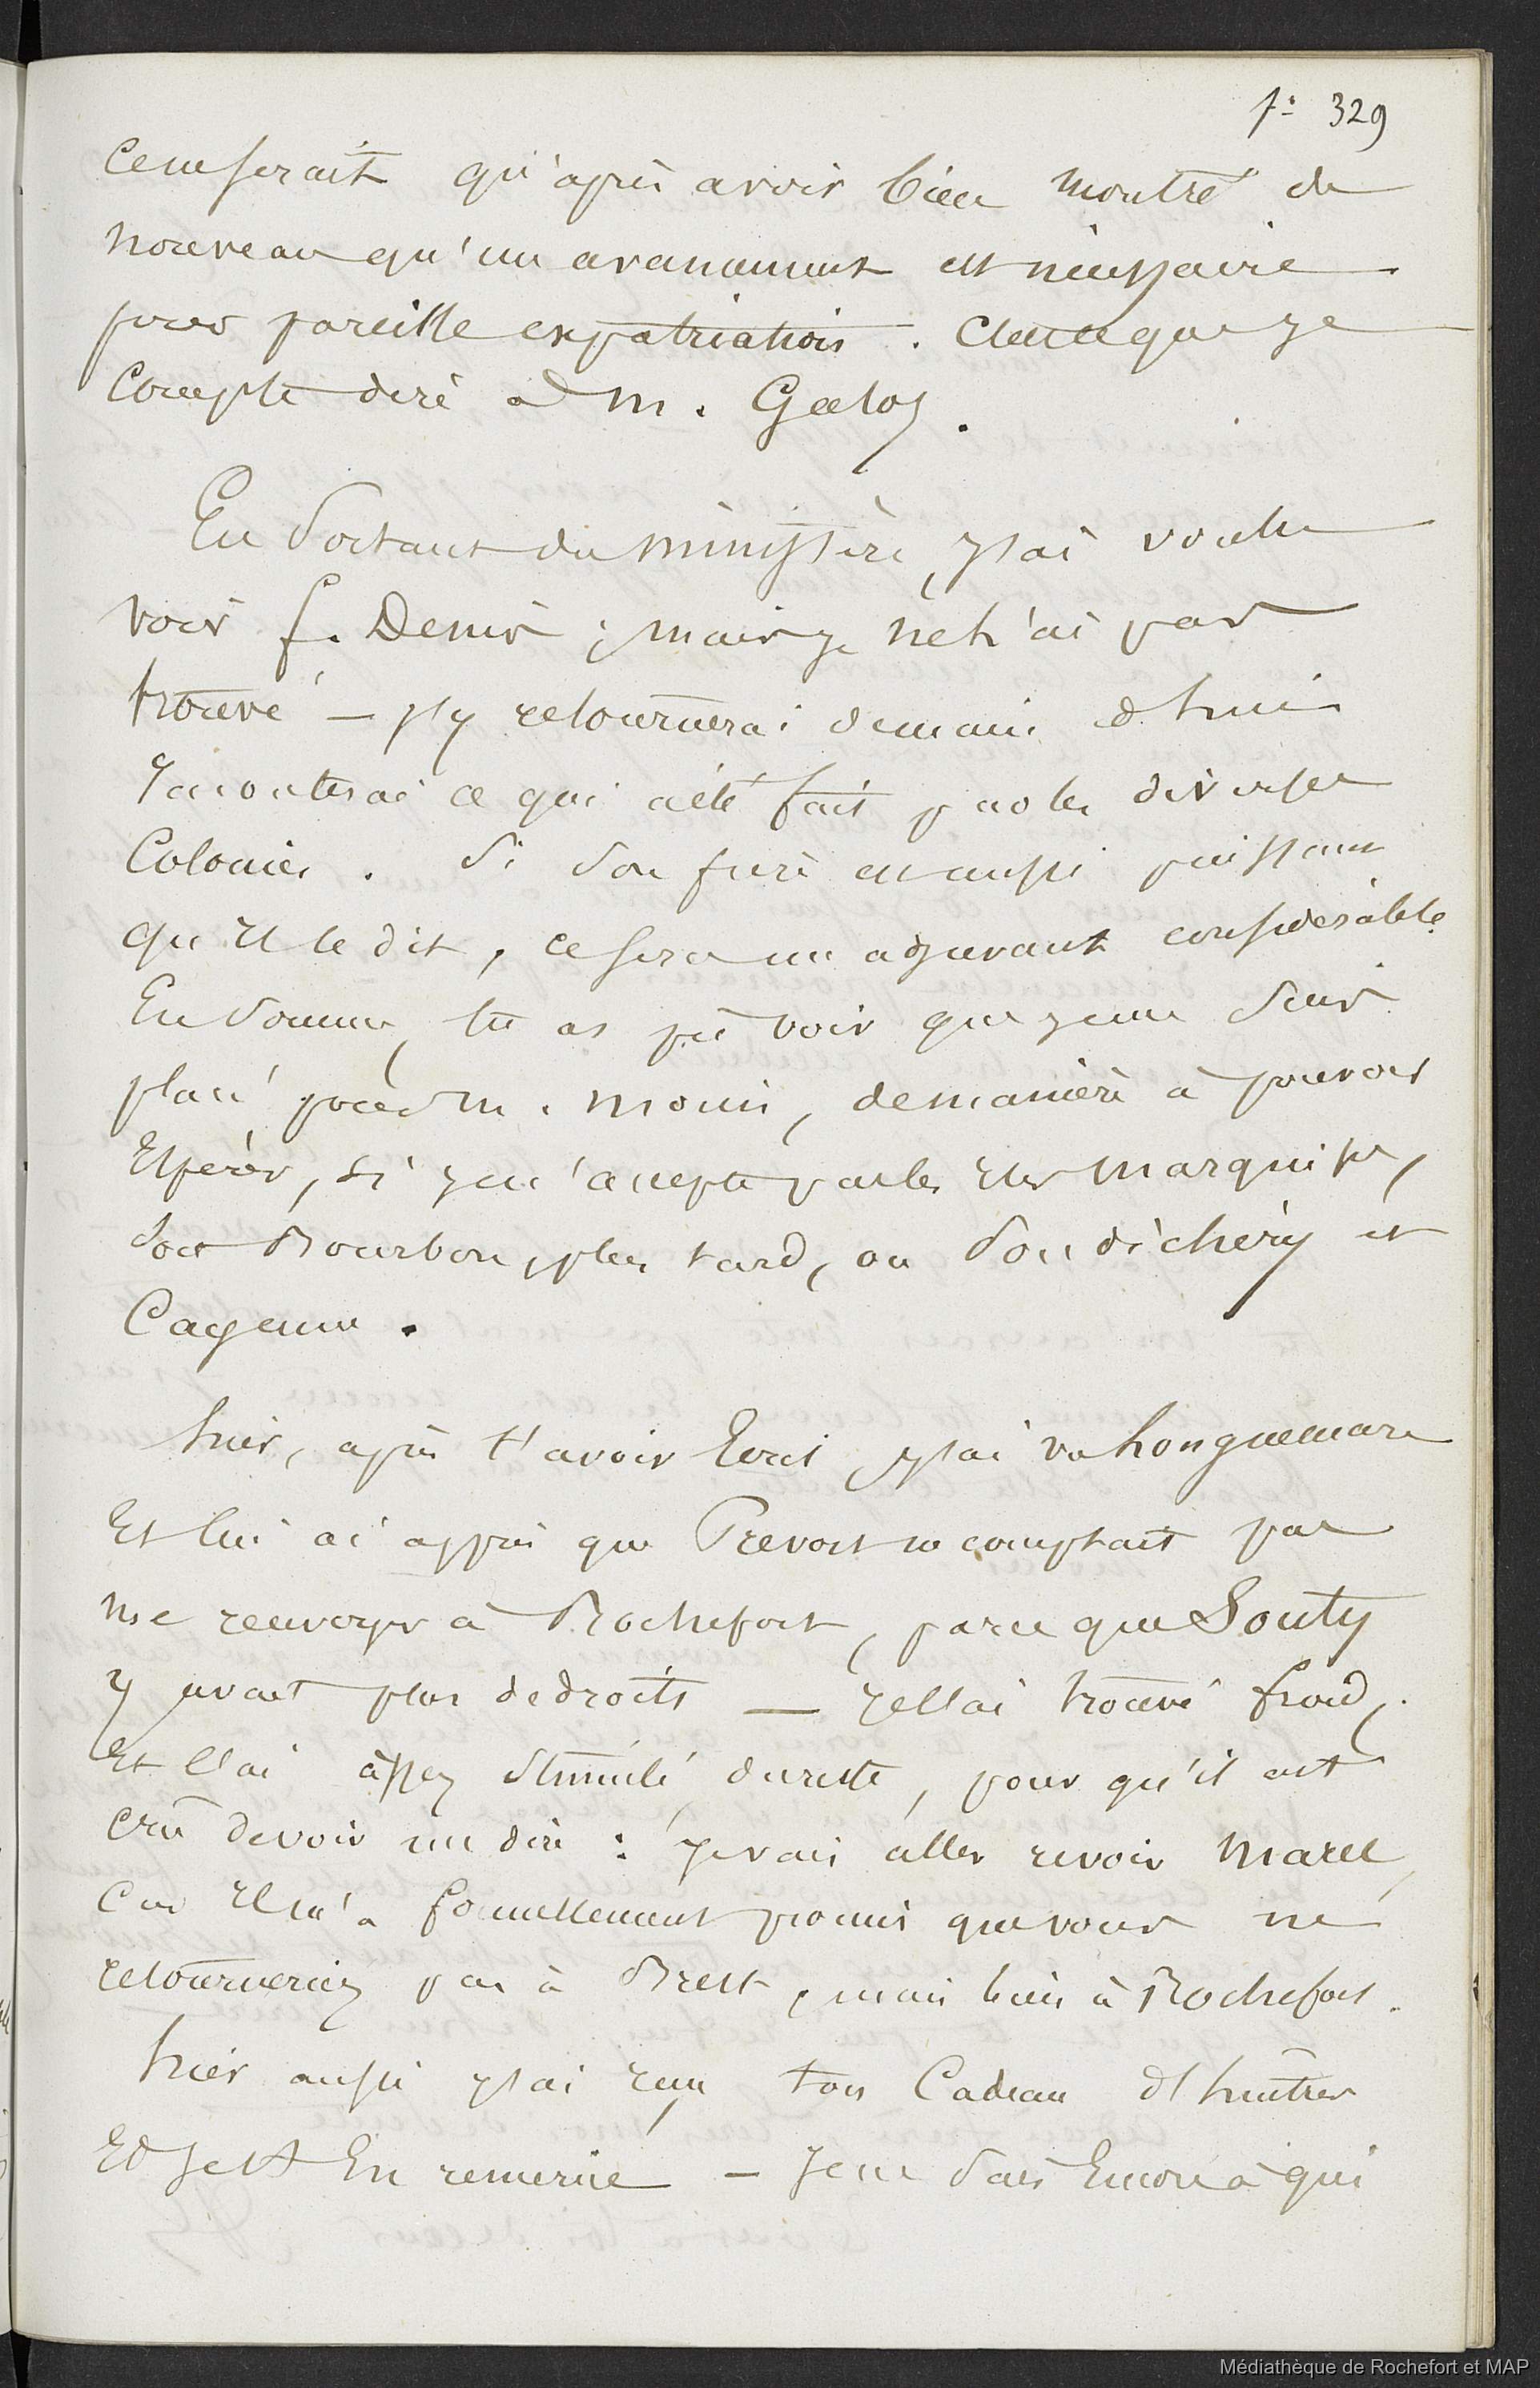 f° 329
ce ne serait qu'après avoir bien montré de
nouveau qu'un avancement est nécessaire
pour pareille expatriation. C'est ce que je
compte dire à M. Galos.
En sortant du ministère, j'ai voulu
voir f. Denis ; mais je ne l'ai pas
trouvé — j'y retournerai demain et lui
raconterai ce qui a été fait par les diverses
Colonies. Si son frère est aussi puissant
qu'il le dit, ce sera un adjuvant considérable.
En somme, tu as pu voir que je me suis
placé pour M. moins, de manière à pouvoir
Espérer, si je n'accepte pas les îles marquises,
soit Bourbon, plus tard, ou Pondichéry et
Cayenne.
hier, après t'avoir Ecrit, j'ai vu honguemare
Et lui ai appris que Prevost ne comptait pas
me renvoyer à Rochefort, parce que Souty
y avait plus de droits — je l'ai trouvé froid,
Et l'ai assez stimulé, du reste, pour qu'il ait
cru devoir me dire : je vais aller revoir Marec,
Car Il m'a formellement promis que vous ne
retourneriez pas à Brest, mais bien à Rochefort.
hier aussi j'ai reçu ton Cadeau d'huitres
Et je t'En remercie — Je ne sais Encore à qui
Médiathèque de Rochefort et MAP